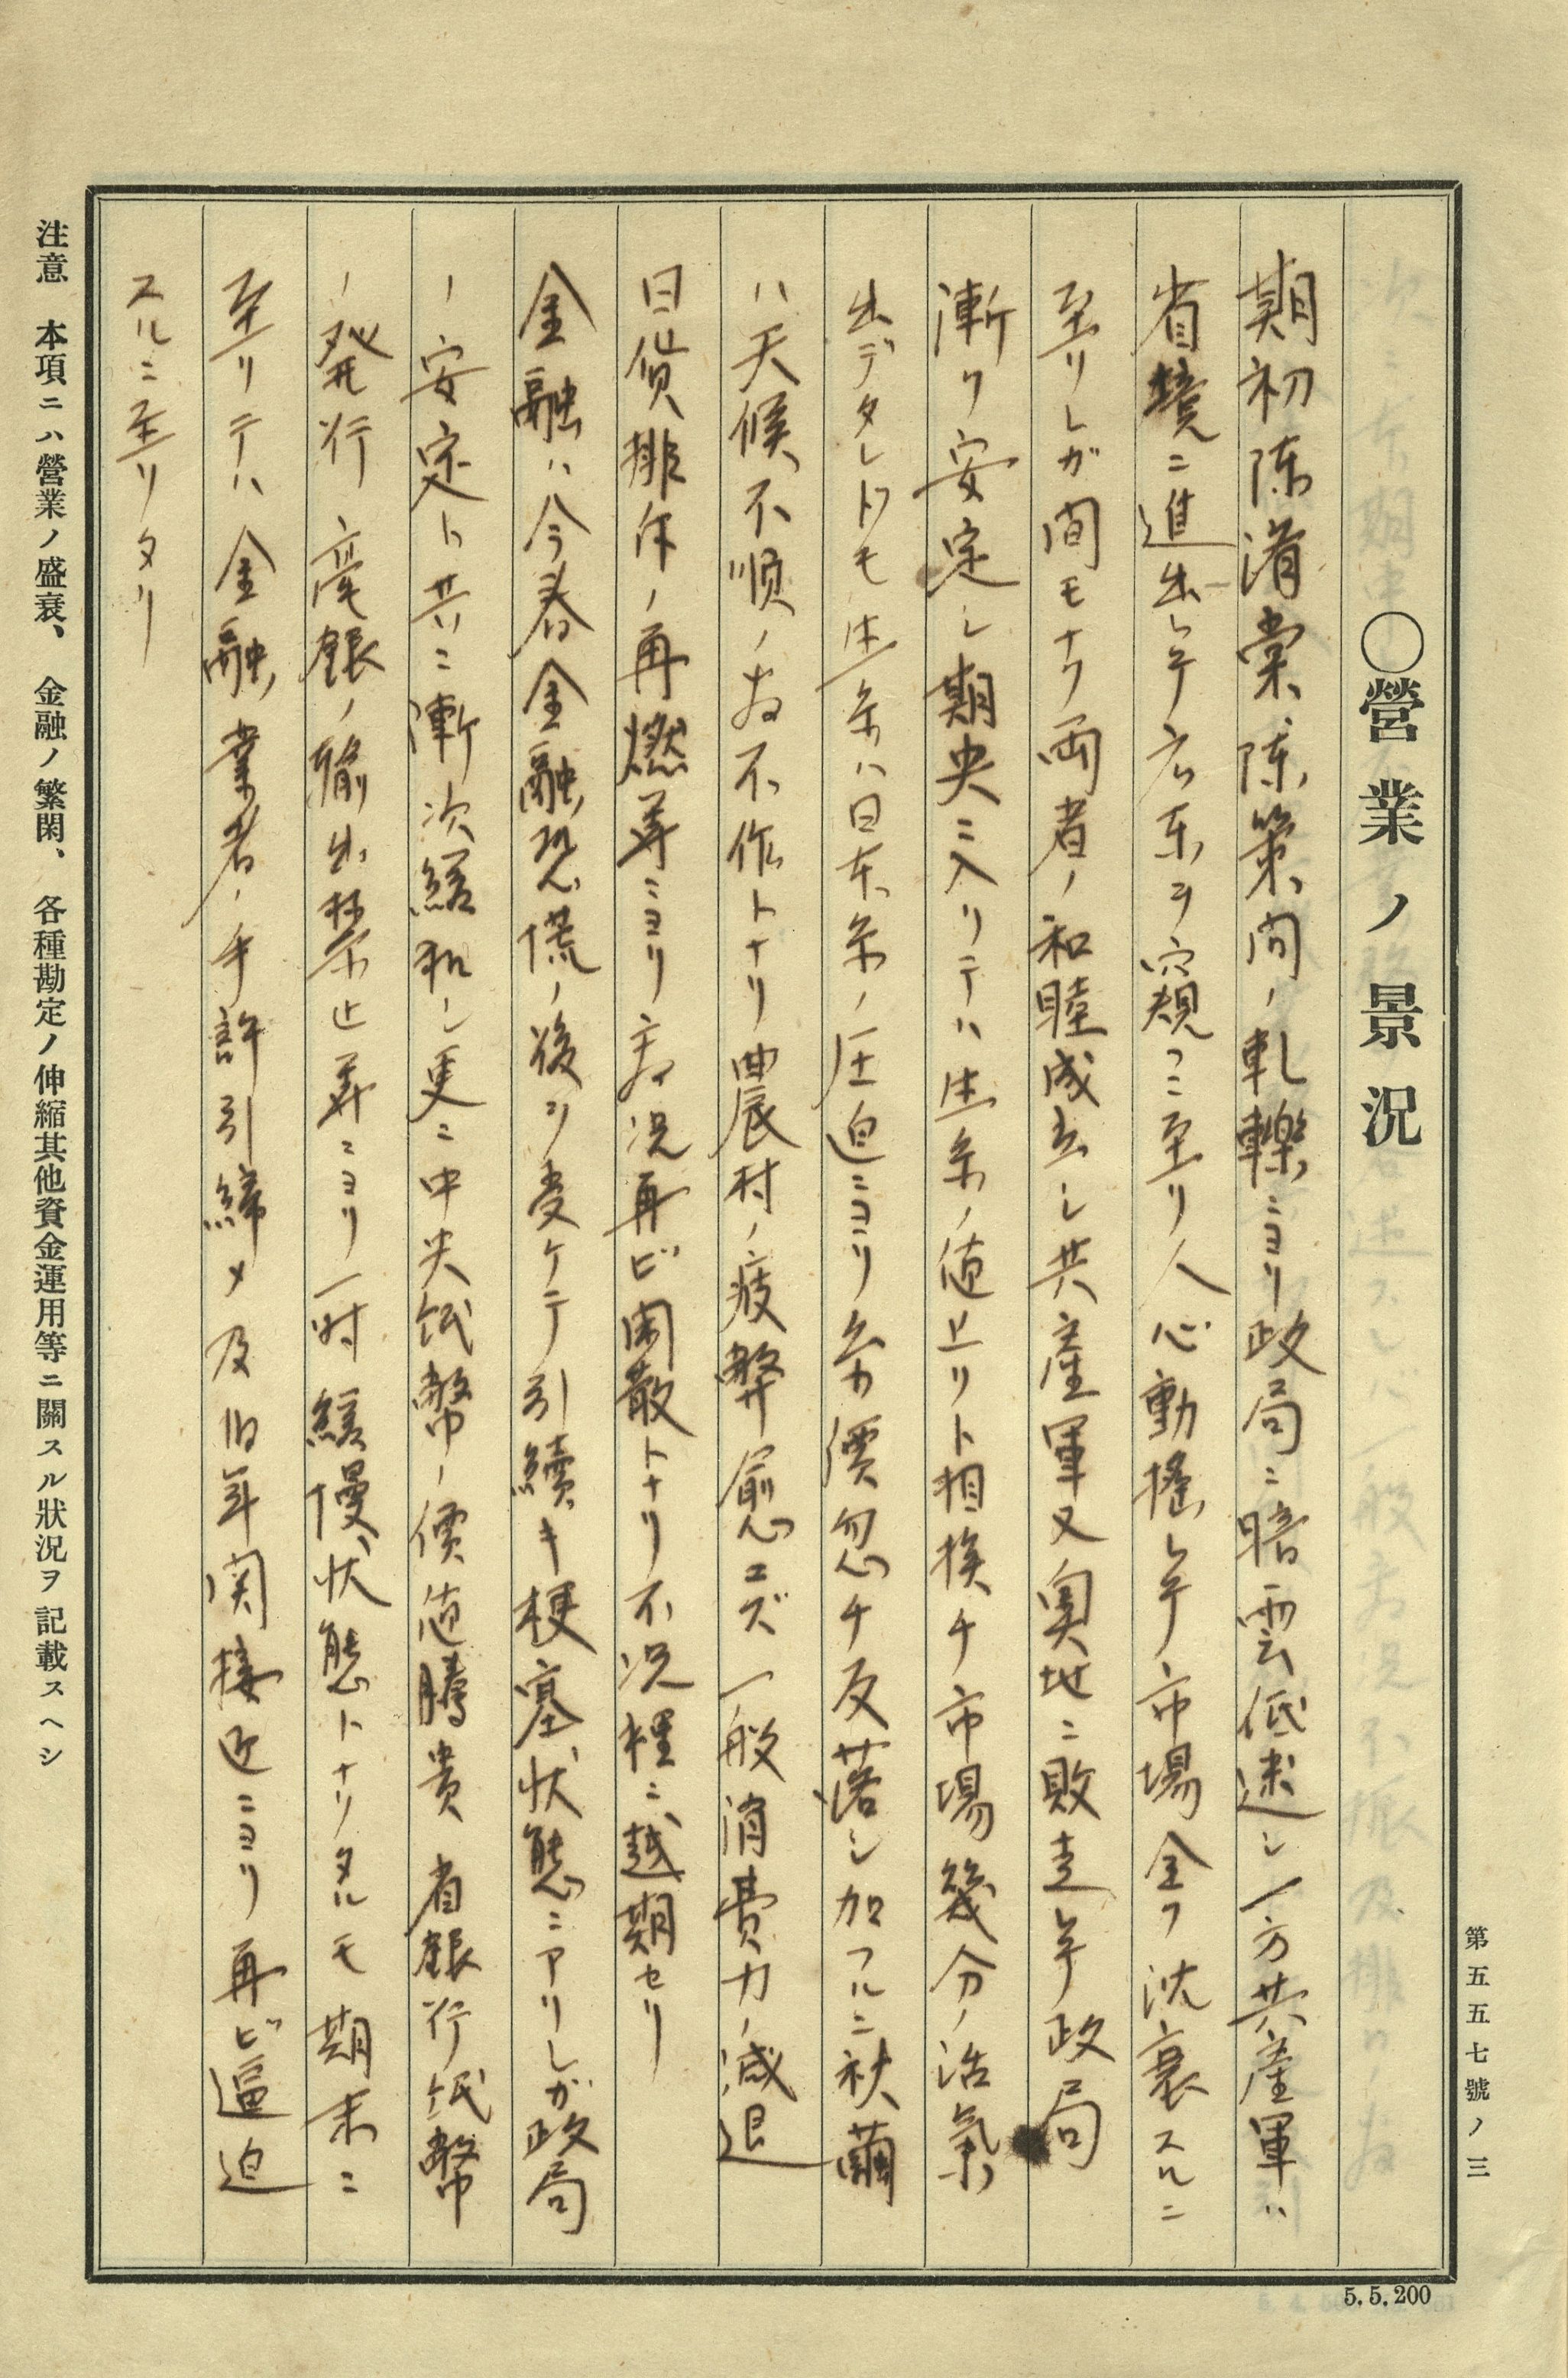 第五五七號ノ三
〇營業ノ景況
期初陳濟棠、陳策間ノ軋轢ニヨリ政局ニ暗雲低迷シ一方共産軍ハ
省境ニ進出シテ広东ヲ窺フニ至リ人心動搖シテ市場全ク沈衰スルニ
至リシガ間モナク両者ノ和睦成立シ共産軍又奥地ニ敗走シテ政局
漸ク安定シ期央ニ入リテハ生糸ノ値上リト相挨チ市場幾分ノ活氣
出デタレドモ生糸ハ日本糸ノ圧迫ニヨリ糸價忽チ反落シ加フルニ秋繭
ハ天候不順ノ為不作トナリ農村ノ疲弊愈エズ一般消費力ノ減退
日貨排斥ノ再燃等ニヨリ商况再ビ閑散トナリ不况裡ニ越期セリ
金融ハ今春金融恐慌ノ後ヲ受ケテ引續キ梗塞状態ニアリシガ政局
ノ安定ト共ニ漸次緩和シ更ニ中央紙幣ノ價値騰貴 省銀行紙幣
ノ発行 毫銀ノ輸出禁止等ニヨリ一時緩慢状態トナリタルモ期末ニ
至リテハ金融業者ノ手許引締メ及旧年関接近ニヨリ再ビ逼迫
スルニ至リタリ
注意 本項ニハ營業ノ盛衰、金融ノ繁閑、各種勘定ノ伸縮其他資金運用等ニ關スル狀況ヲ記載スヘシ
5.5.200